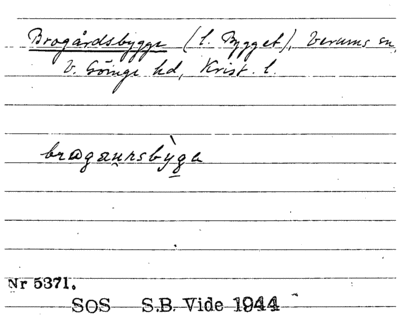 Brogårdsbygge (l. Bygget), Verums sn,
V. Göinge hd, Krist. l.
brogau̯nsby̆̀ga
Nr 5371.
SOS S.B. Vide 1944